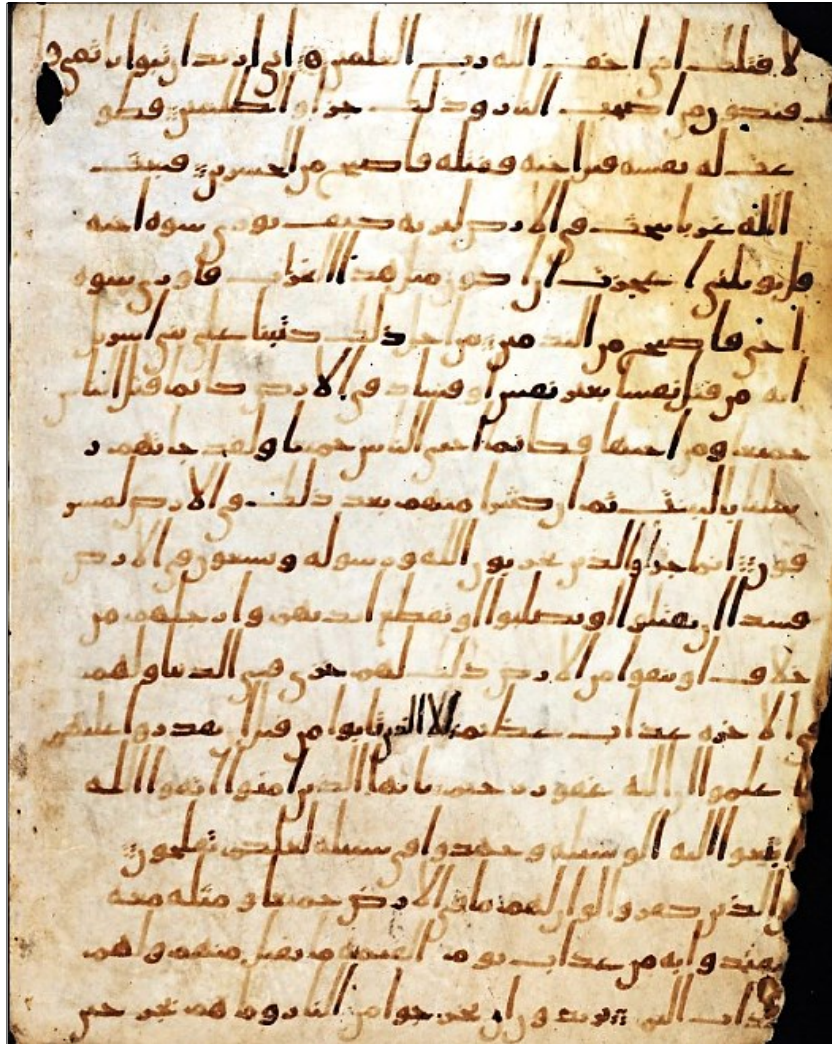 لا قتلك انى اخف الله رب العلمين انى اريد ان تبوا باثمى و
ـك فتكون من اصحب النار وذلك جزاوا الظلمين فطو
عت له نفسه قتل اخيه فقتله فاصبح من الخسرين فبعث
الله غربا يبحث فى الارض ليريه كيف يورى سوه اخيه
قل يويلتى اعجزت ان اكون مثل هذا الغراب فاورى سوه
اخى فاصبح من الندمين من اجل ذلك كتبنا على بنى اسريل
انه من قتل نفسا بغير نفس او فساد فى الارض كانما قتل الناس
جميعا ومن احيها فكانما احيى الناس جميعا ولقد جاتهم ر
سلنا بالبينت ثم ان كثيرا منهم بعد ذلك فى الارض لمسر
فون انما جزاوا الذين يحربون الله ورسوله ويسعون فى الارض
فسدا ان يقتلوا او يصلبوا او تقطع ايديهم وارجلهم من
خلاف او ينفوا من الارض ذلك لهم خزى فى الدنيا ولهم
فى الاخره عذاب عظيم الا الذين تابوا من قبل ان تقدروا عليهم
فاعلموا ان الله غفور رحيم يايها الذين امنوا اتقوا الله
وابتغوا اليه الوسيله وجهدوا فى سبيله لعلكم تفلحون
الذين كفروا لو ان لهم ما فى الارض جميعا ومثله معه
ليفتدوا به من عذاب يوم القيمه ما تقبل منهم ولهم
عذاب اليم يريدون ان يخرجوا من النار وما هم بخرجين